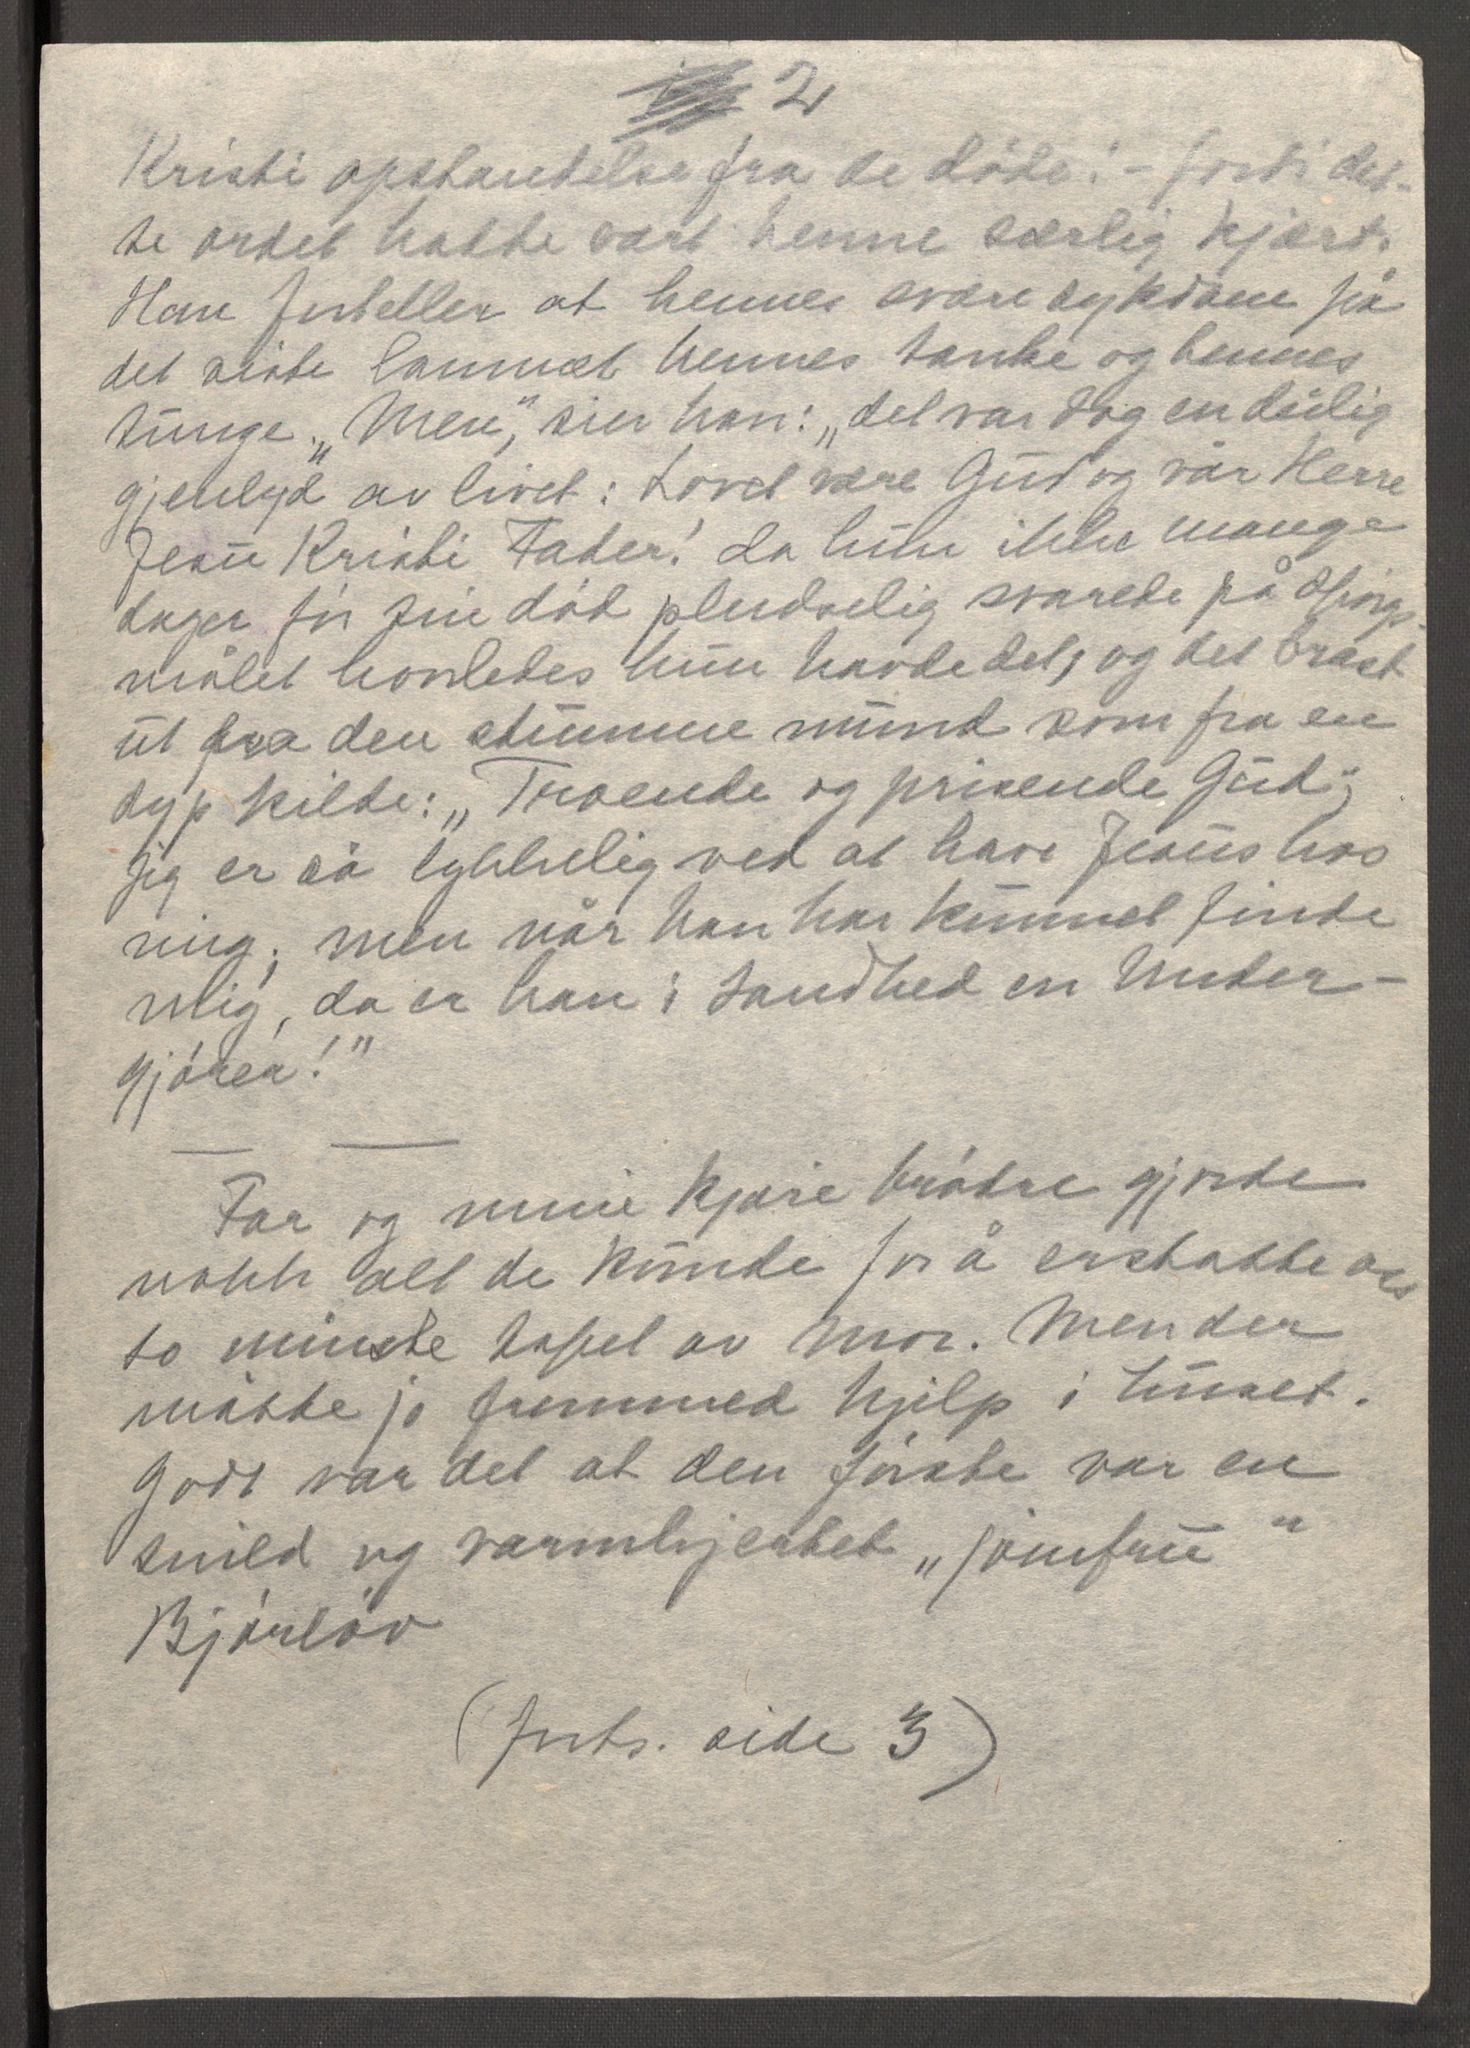 2
Kristi opstandelse fra de døde! - fordi det-
te ordet hadde vært henne særlig kjært.
Han forteller at hennes svære sykdom på
det siste lammet hennes tanke og hennes
tunge. „Men", sier han: „det var dog en deilig
gjenlyd av livet: Lovet være Gud og vår Herre
Jesu Kristi Fader! da hun ikke mange
dager før sin død pludselig svarede på spørgs-
målet hvorledes hun havde det, og det brast
ut fra den stumme mund som fra en
dyp kilde: „Troende og prisende Gud";
Jeg er så lykkelig ved at have Jesus hos
mig; men når han har kunnet finde
mig, da er han i sandhed en Under-
gjører!"
Far og mine kjære brødre gjorde
nokk alt de kunde for å erstatte oss
to minste tapet av Mor. Men der
måtte jo fremmed hjelp i huset.
Godt var det at den første var en
snild og varmhjertet „jomfru"
Bjørløv
(forts. side 3)